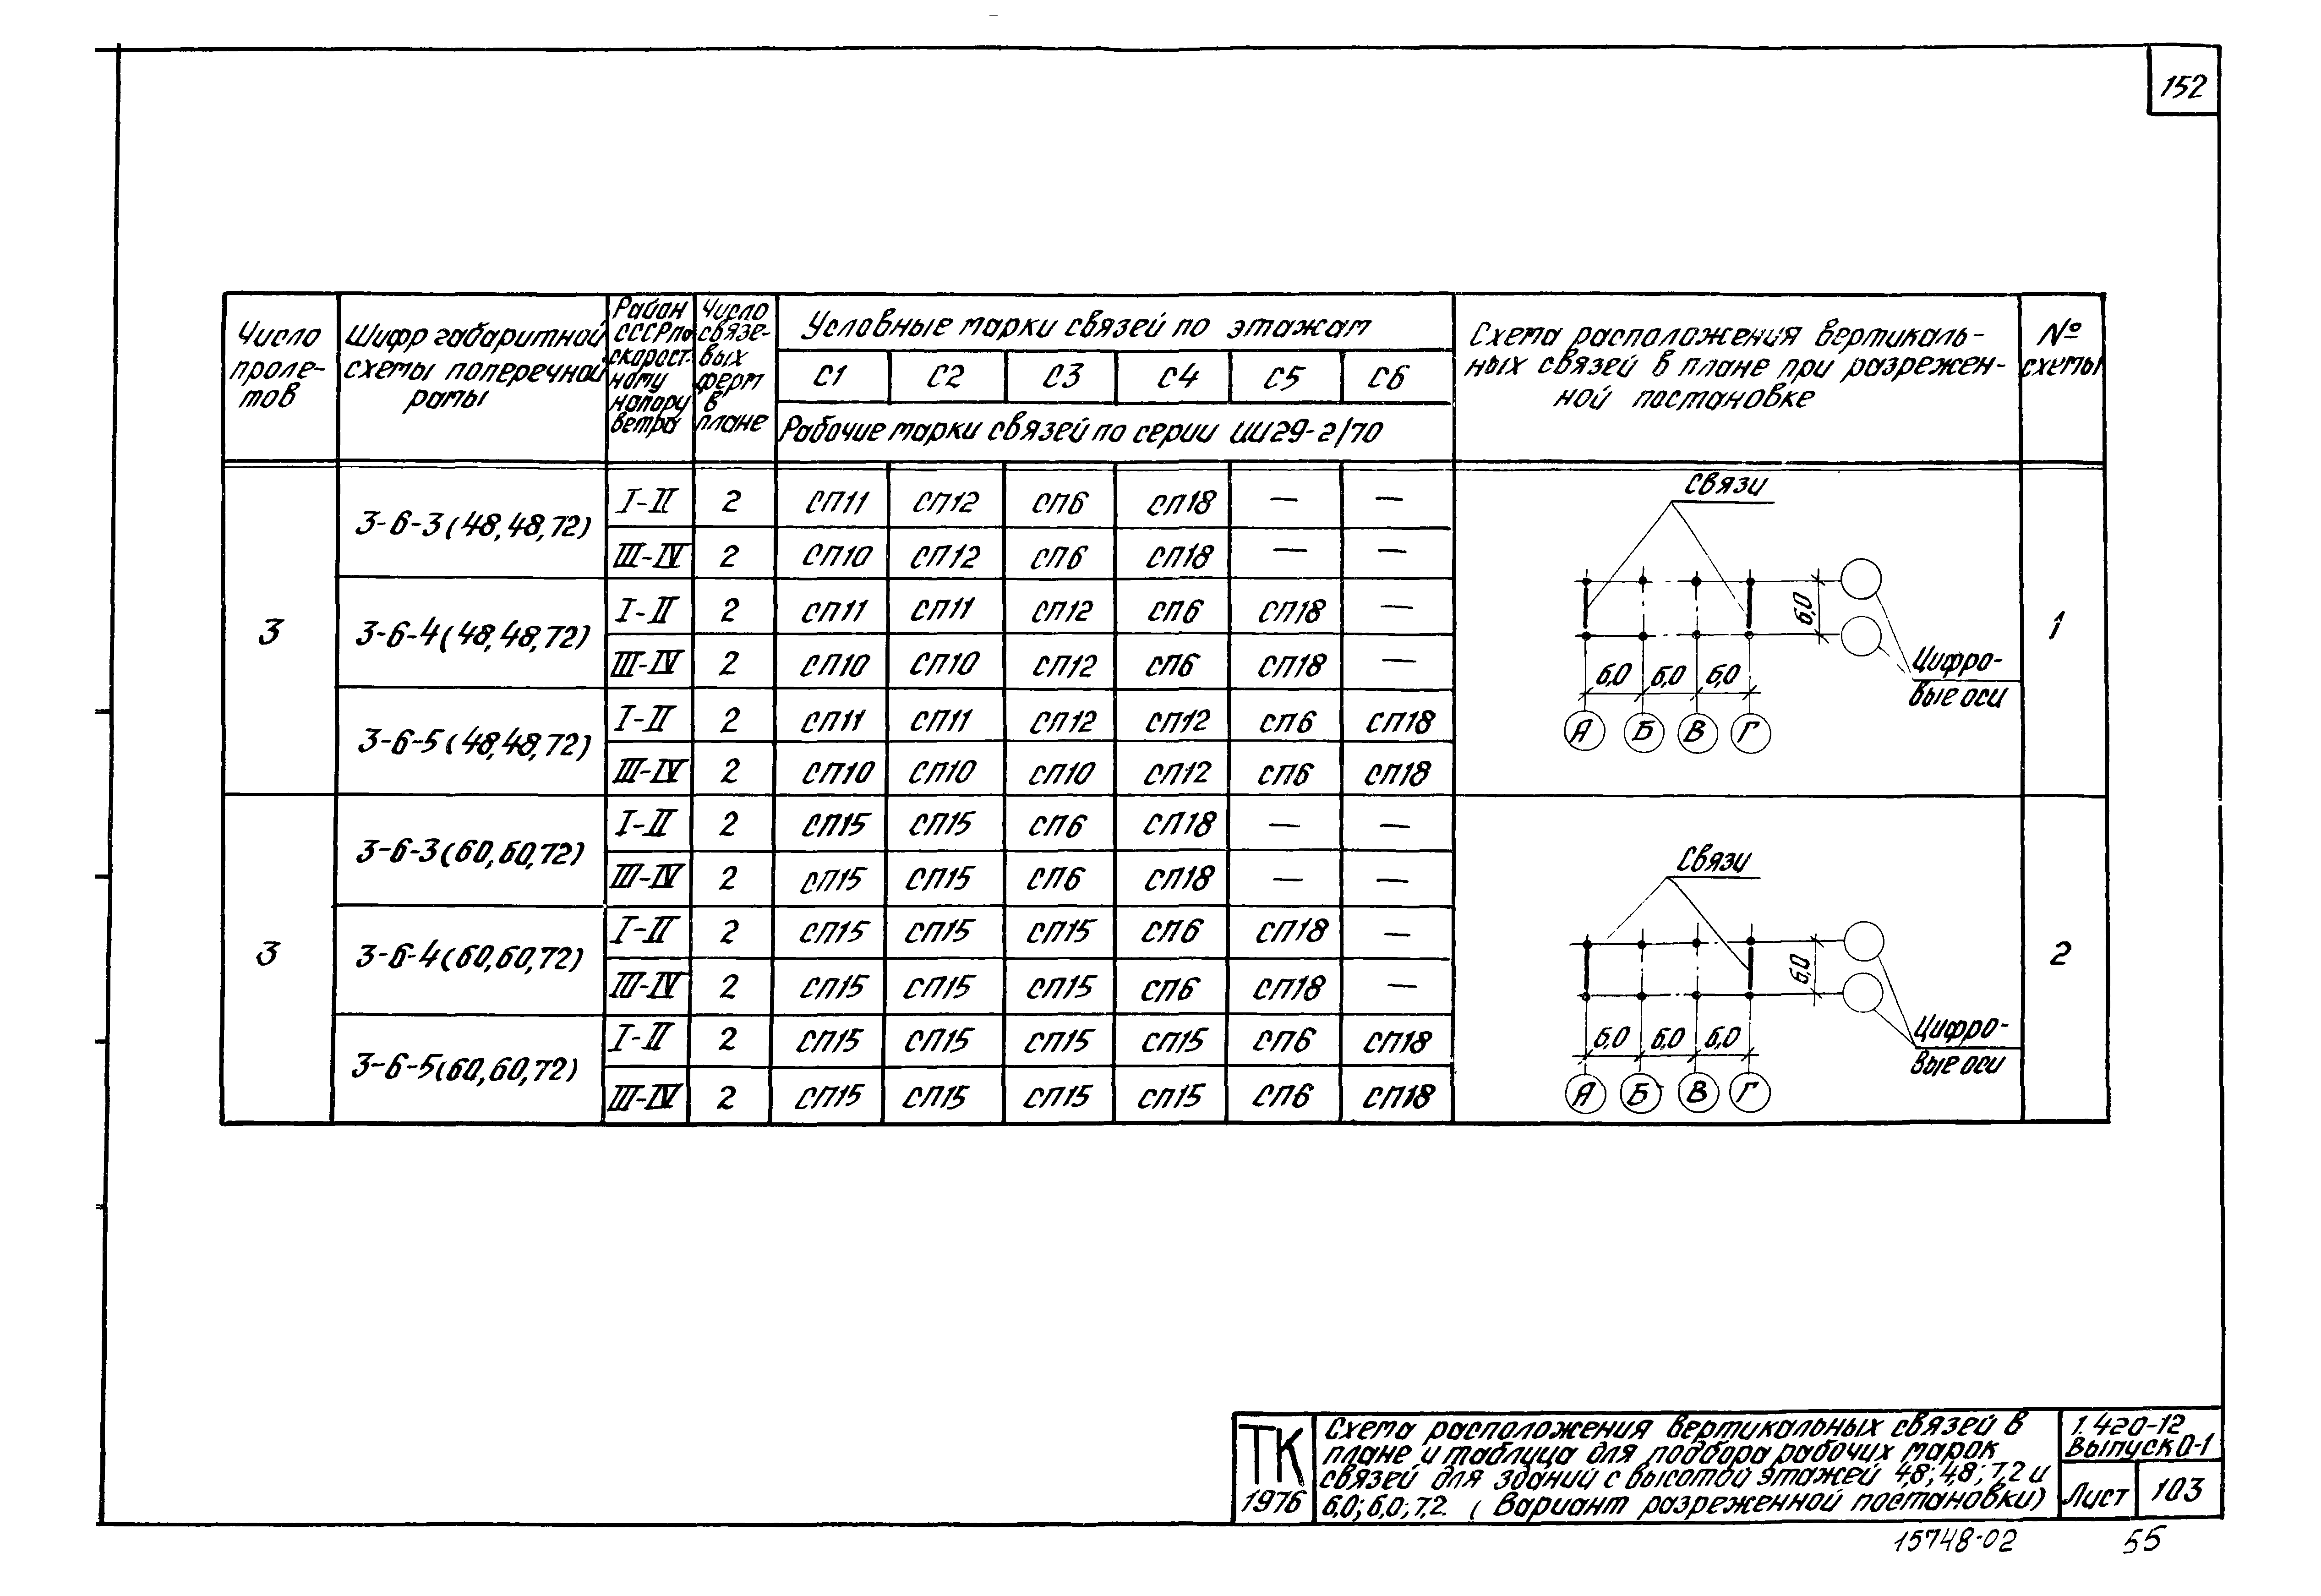 152
Число проле-тов
Шифр габаритной схемы поперечной рамы
Район СССР по скорост-ному напору ветра
Число связе-вых ферм в плане
Условные марки связей по этажам
С1 С2 С3 С4 С5 С6
Рабочие марки связей по серии ИИ29-2/70
Схема расположения вертикаль-
ных связей в плане при разрежен-
ной постановке
№ схемы
3
3-6-3(48,48,72)
I-II 2 СП11 СП12 СП6 СП18 — —
III-IV 2 СП10 СП12 СП6 СП18 — —
3-6-4(48,48,72)
I-II 2 СП11 СП11 СП12 СП6 СП18 —
III-IV 2 СП10 СП10 СП12 СП6 СП18 —
3-6-5(48,48,72)
I-II 2 СП11 СП11 СП12 СП12 СП6 СП18
III-IV 2 СП10 СП10 СП10 СП12 СП6 СП18
Связи
6,0
6,0 6,0 6,0
Цифро-
вые оси
А Б В Г
1
3
3-6-3(60,60,72)
I-II 2 СП15 СП15 СП6 СП18 — —
III-IV 2 СП15 СП15 СП6 СП18 — —
3-6-4(60,60,72)
I-II 2 СП15 СП15 СП15 СП6 СП18 —
III-IV 2 СП15 СП15 СП15 СП6 СП18 —
3-6-5(60,60,72)
I-II 2 СП15 СП15 СП15 СП15 СП6 СП18
III-IV 2 СП15 СП15 СП15 СП15 СП6 СП18
Связи
6,0
6,0 6,0 6,0
Цифро-
вые оси
А Б В Г
2
ТК
1976
Схема расположения вертикальных связей в
плане и таблица для подбора рабочих марок
связей для зданий с высотой этажей 4,8; 4,8; 7,2 и
6,0; 6,0; 7,2. (Вариант разреженной постановки)
1.420-12
Выпуск 0-1
Лист 103
15748-02 55